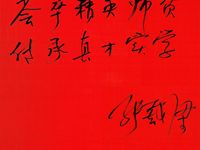 荟萃精英师资
传承真才实学